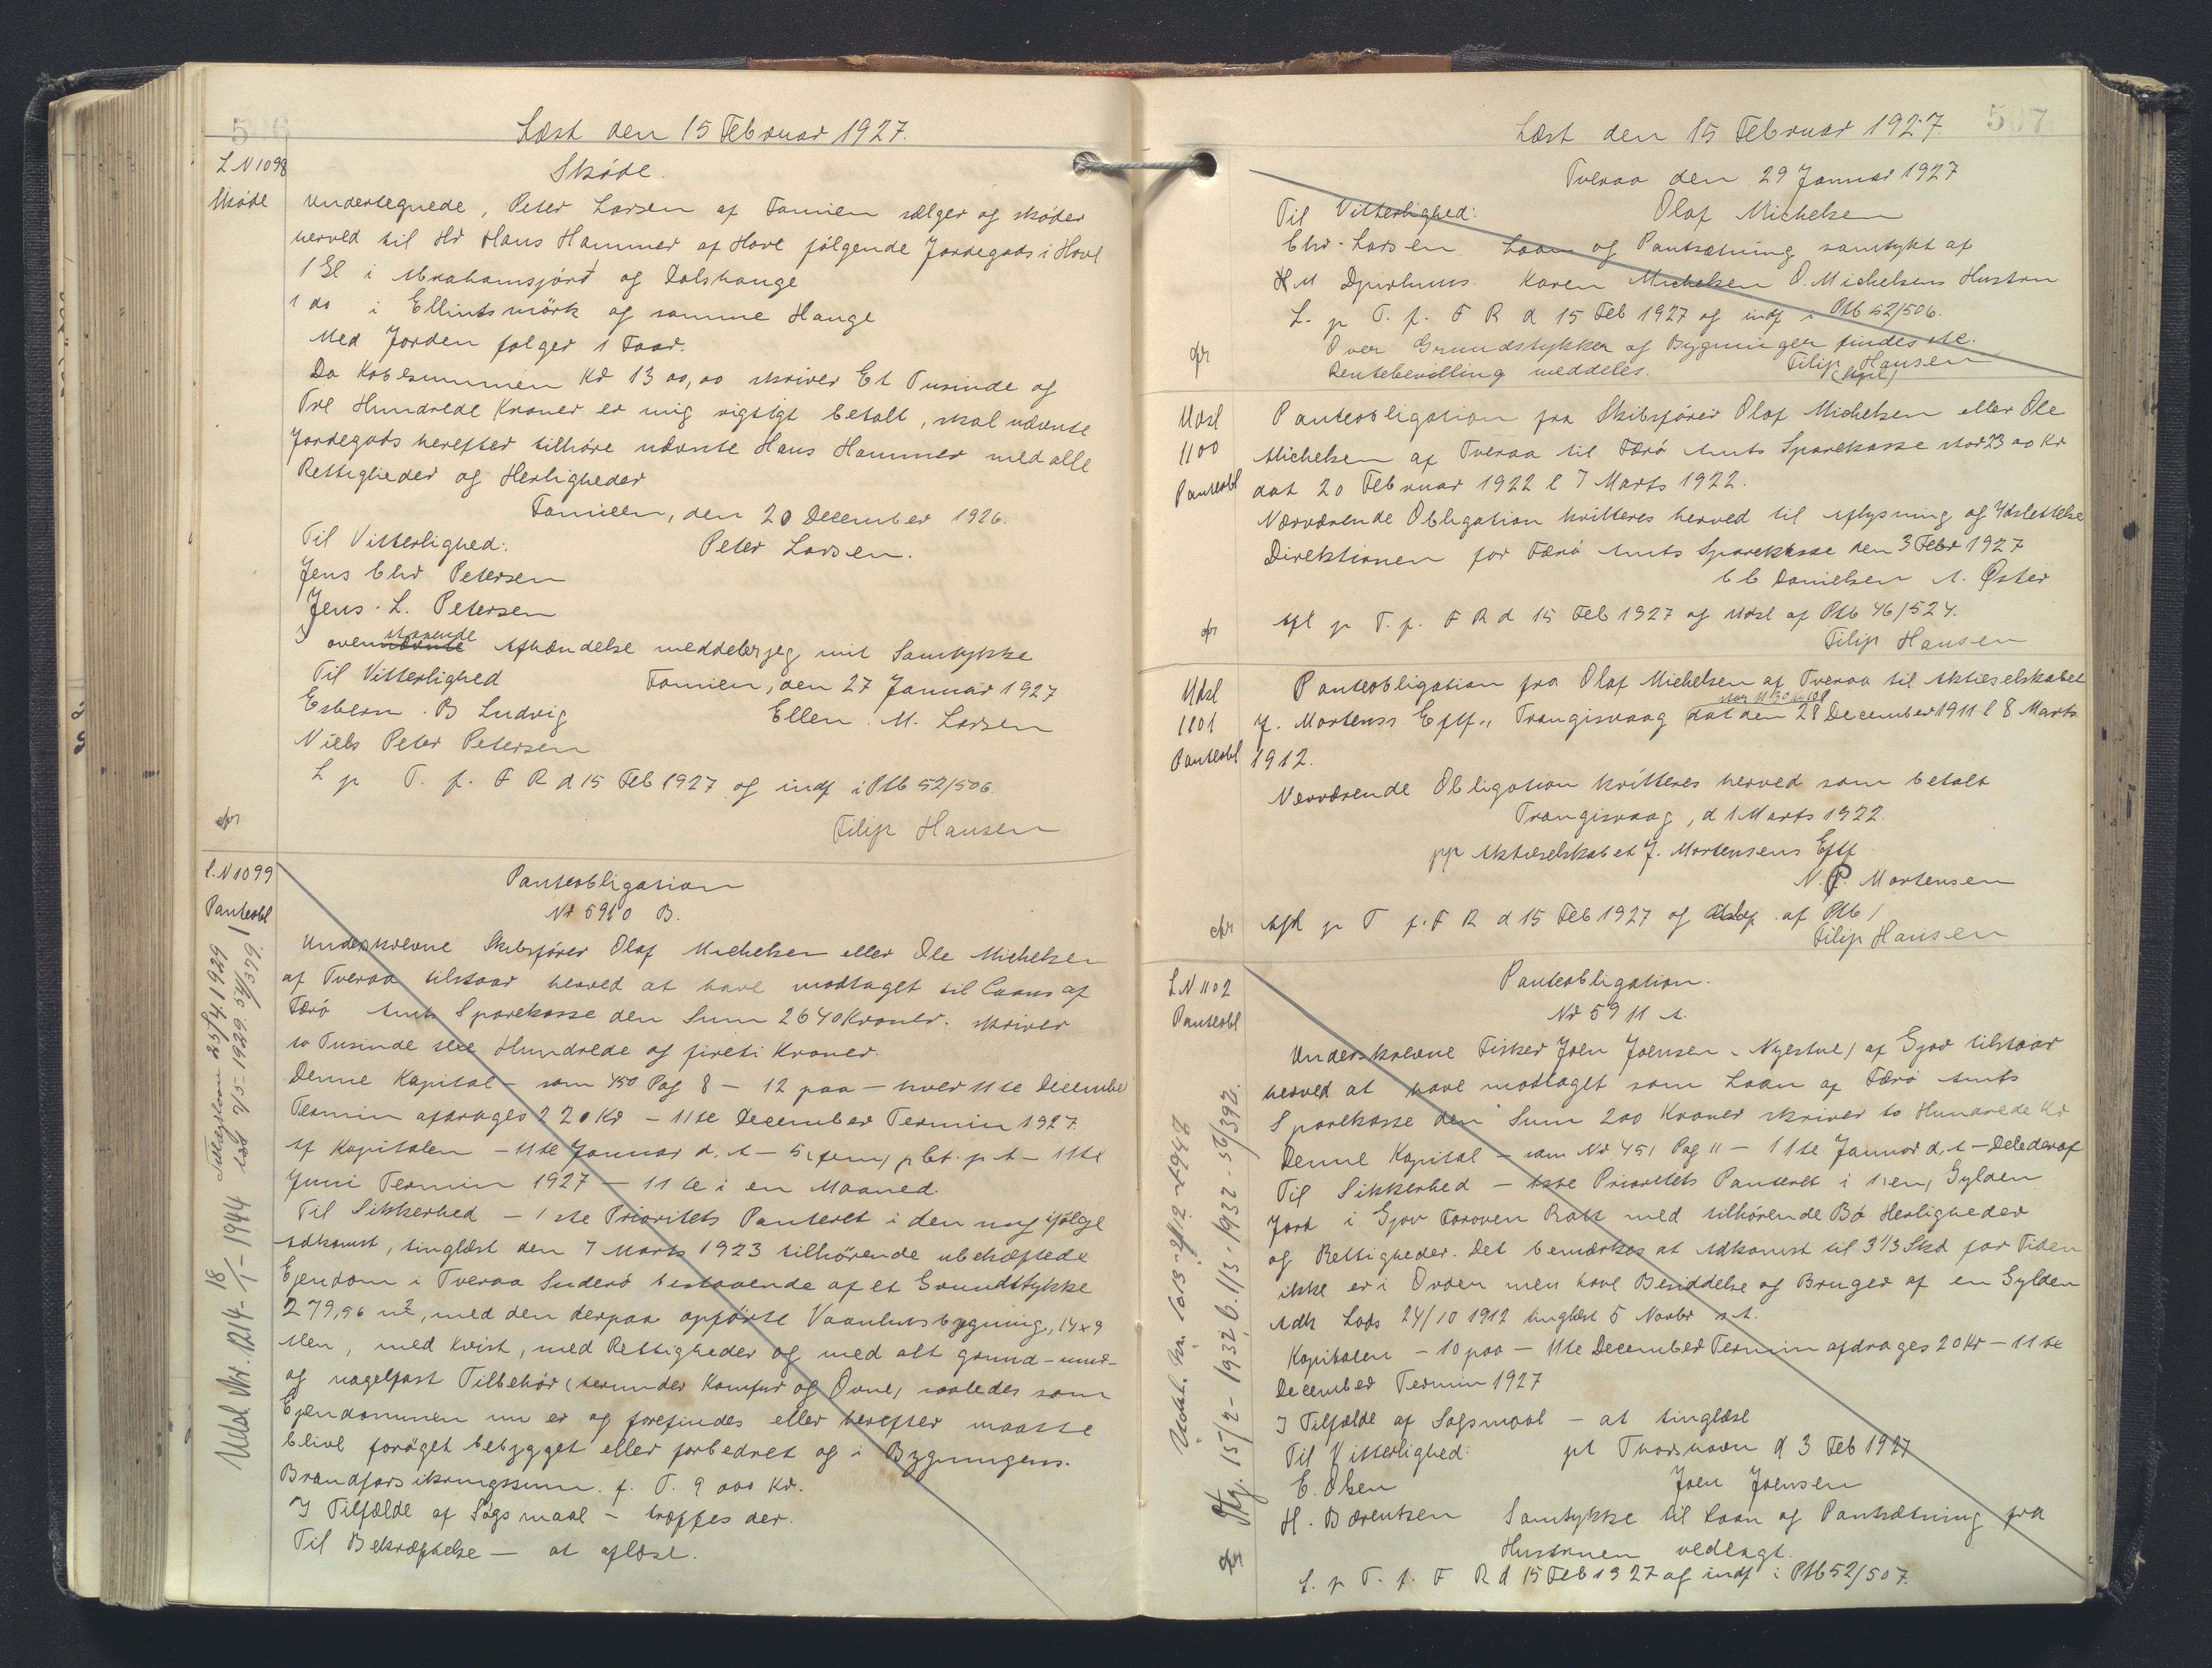 506
Læst den 15 Februar 1927.
L N 1098
Skøde
Skøde.
Undertegnede, Peter Larsen af Famien sælger og skøder
herved til Hr Hans Hammer af Hove følgende Jordegods i Hove
1 Gl i Abrahamsjørd og Dalshauge
1 do i Ellintsmørk og samme Hauge
Med Jorden følger 1 Faar.
Da Købesummen Kr 1300,00 skriver Et Tusinde og
Tre Hundrede Kroner er mig rigtigt betalt, skal nævnte
Jordegods herefter tilhøre nævnte Hans Hammer med alle
Rettigheder og Herligheder
Famieen, den 20 December 1926.
Til Vitterlighed:
Peter Larsen.
Jens Chr Petersen
Jens. L. Petersen
I ovenstaaende Afhændelse meddeler jeg mit Samtykke
Til Vitterlighed
Famien, den 27 Januar 1927
Esbern. B Ludvig
Ellen. M. Larsen
Niels Peter Petersen
L p T. f. F R d 15 Feb 1927 og indf i Ptb 52/506.
Filip Hansen
L.N 1099
Panteobl
Panteobligation
Nr 5910 B.
Underskrevne Skibsfører Olaf Michelsen eller Ole Michelsen
af Tveraa tilstaar herved at have modtaget til Laans af
Færø Amts Sparekasse den Sum 2640 Kroner. skriver
to Tusinde sex Hundrede og fireti Kroner.
Denne Kapital - som 450 Pag 8 - 12 paa - hver 11te December
Termin afdrages 220 Kr - 11te December Termin 1927.
Af Kapitalen - 11te Januar d. A - 5, fem, pCt. p A - 11te
Juni Termin 1927 - 11te i en Maaned.
Til Sikkerhed - 1ste Prioritets Panteret i den mig ifølge
Adkomst, tinglæst den 7 Marts 1923 tilhørende ubehæftede
Ejendom i Tveraa Suderø bestaaende af et Grundstykke
279,56 m², med den derpaa opførte Vaanhusbygning, 14 x 9
Alen, med Kvist, med Rettigheder og med alt grund- mur-
og nagelfast Tilbehør (herunder Komfur og Ovne, saaledes som
Ejendommen nu er og forefindes eller herefter maatte
blive forøget bebygget eller forbedret og i Bygningens.
Brandforsikringssum. f. T. 9 000 Kr.
I Tilfælde af Søgsmaal - træffes der.
Til Bekræftelse - at aflæse.
Tillægslaan 25/4 1929
læst 7/5- 1929. 54/379.
Udsl. Nr. 1214- 18/1- 1944
507
Læst den 15 Februar 1927.
Tveraa den 29 Januar 1927
Til Vitterlighed:
Olaf Michelsen
Chr. Larsen Laan og Pantsætning samtykt af
H M Djurhuus. Karen Michelsen O. Michelsens Hustru
L. p T. f. F R d 15 Feb 1927 og indf i Ptb 52/506.
Over Grundstykker og Bygninger findes ste.
Rentebevilling meddeles.
Filip Hansen
Udsl
1100
Panteobl
Panteobligation fra Skibsfører Olaf Michelsen eller Ole
Michelsen af Tveraa til Færø Amts Sparekasse stor 2300 Kr
dat 20 Februar 1922 l 7 Marts 1922.
Nærværende Obligation kvitteres herved til Aflysning og Udslettelse
Direktionen for Færø Amts Sparekasse den 3 Febr 1927
C C Danielsen A. Øster
Afl p T. f. F R d 15 Feb 1927 og Udsl af Ptb 46/524.
Filip Hansen
Udsl
1101
Panteobl
Panteobligation fra Olaf Michelsen af Tveraa til Aktieselskabet
J. Mortenss Eftf., Trangisvaag dat den 28 December 1911 l 8 Marts
1912.
Nærværende Obligation kvitteres herved som betalt
Trangisvaag, d 1 Marts 1922.
pp Aktieselskabet J. Mortensens Eftf
N. P. Mortensen
Afl p T f. F R d 15 Feb 1927 og af Ptb /
Filip Hansen
L N 1102
Panteobl
Panteobligation.
Nr 5911 A.
Underskrevne Fisker Joen Joensen - Nyestue) af Gjov tilstaar
herved at have modtaget som Laan af Færø Amts
Sparekasse den Sum 200 Kroner skriver to Hundrede Kr
Denne Kapital - som Nr 451 Pag 11 - 11te Januar d. A - Del deraf
Til Sikkerhed - 1ste Prioritets Panteret i 1, en, Gylden
Jord i Gjov Foroven Ratt med tilhørende Bø Herligheder
og Rettigheder. Det bemærkes at Adkomst til 3 1/3 Skd for Tiden
ikke er i Orden men have Besiddelse og Bruger af en Gylden
Adk Lods 24/10 1912 tinglæst 5 Novbr s. A.
Kapitalen - 10 paa - 11te December Termin afdrages 20 Kr - 11te
December Termin 1927
I Tilfælde af Søgsmaal - at tinglæse
Til Vitterlighed:
pt Thorshavn d 3 Feb 1927
E. Olsen
Joen Joensen
H. Bærentsen Samtykke til Laan og Pantsætning fra
Hustruen vedlagt.
L. p T. f. F R d 15 Feb 1927 og indf i Ptb 52/507.